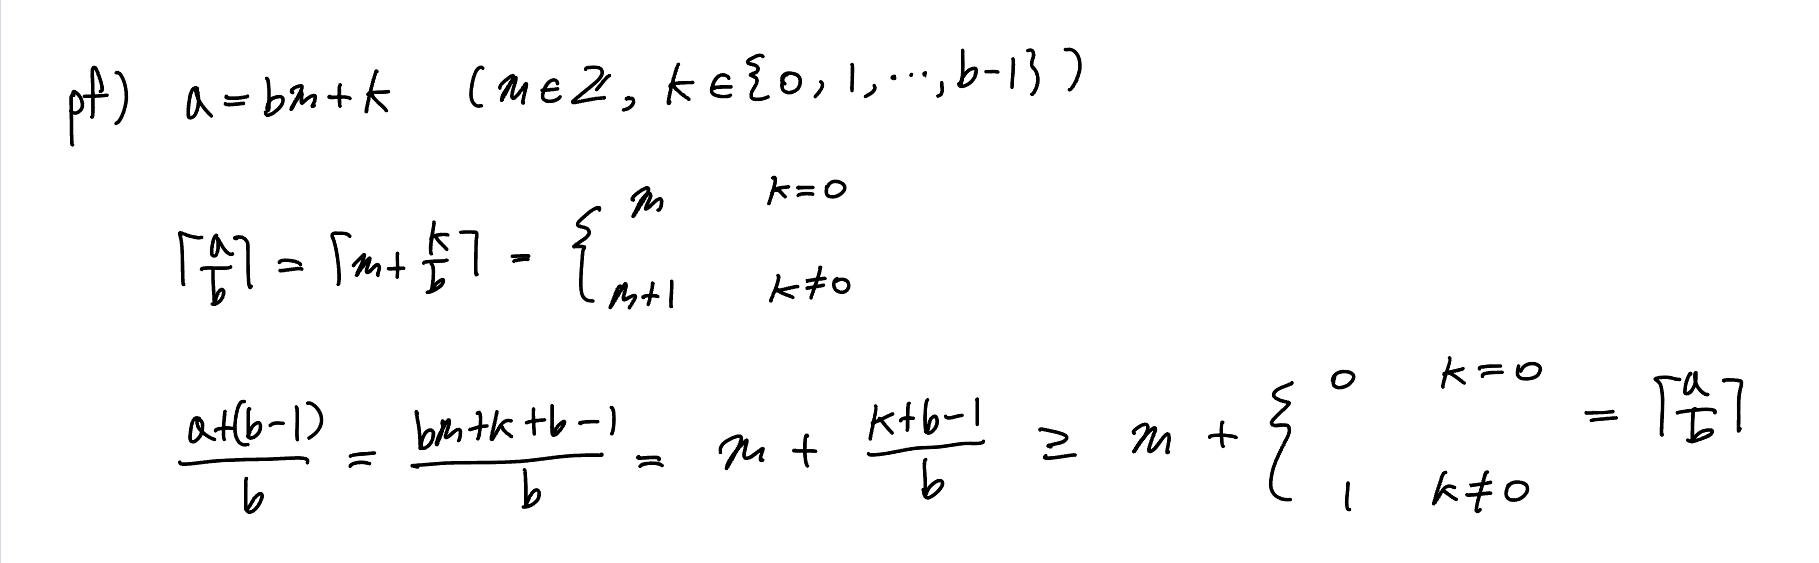 pf) a = bm + k (m ∈ Z, k ∈ {0, 1, ..., b-1})
⌈a/b⌉ = ⌈m + k/b⌉ = { m k=0 ; m+1 k≠0
(a+(b-1))/b = (bm+k+b-1)/b = m + (k+b-1)/b ≥ m + { 0 k=0 ; 1 k≠0 = ⌈a/b⌉